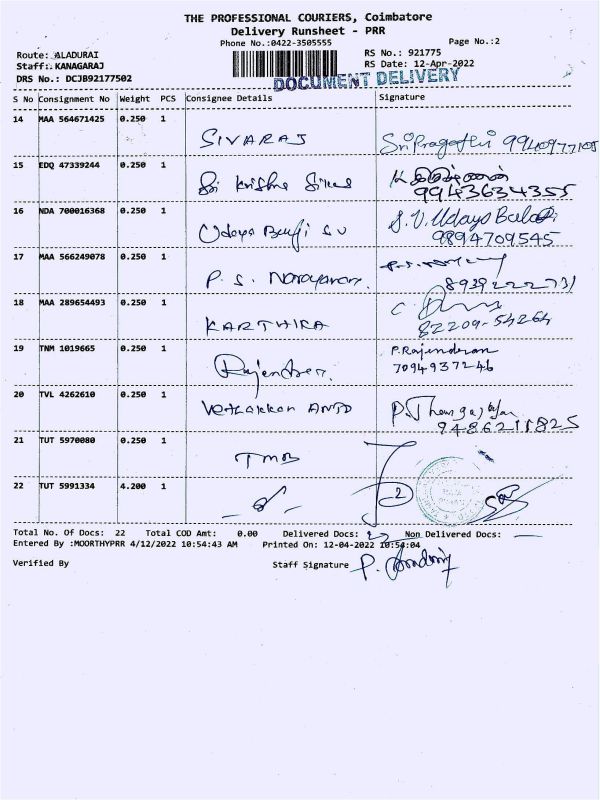 THE PROFESSIONAL COURIERS, Coimbatore
Delivery Runsheet - PRR
Phone No.:0422-3505555 Page No.:2
Route: ALADURAI RS No.: 921775
Staff: KANAGARAJ RS Date: 12-Apr-2022
DRS No.: DCJB92177502 DOCUMENT DELIVERY
S No Consignment No Weight PCS Consignee Details Signature
14 MAA 564671425 0.250 1
SIVARAJ Sri Pragathi
15 EDQ 47339244 0.250 1
Sri Krishna Silks 9943634355
16 NDA 700016368 0.250 1 S.V. Udaya Balaji
Udaya Balaji S V 9894709545
17 MAA 566249078 0.250 1
P. S. Narayanan. 8939222731
18 MAA 289654493 0.250 1
KARTHIKA 82209-54264
19 TNM 1019665 0.250 1 P.Rajendran
Rajendren. 7094937246
20 TVL 4262610 0.250 1
9486211825
21 TUT 5970080 0.250 1
TMB
22 TUT 5991334 4.200 1 2
Total No. Of Docs: 22 Total COD Amt: 0.00 Delivered Docs: Non Delivered Docs:
Entered By :MOORTHYPRR 4/12/2022 10:54:43 AM Printed On: 12-04-2022 10:54:04
Verified By Staff Signature